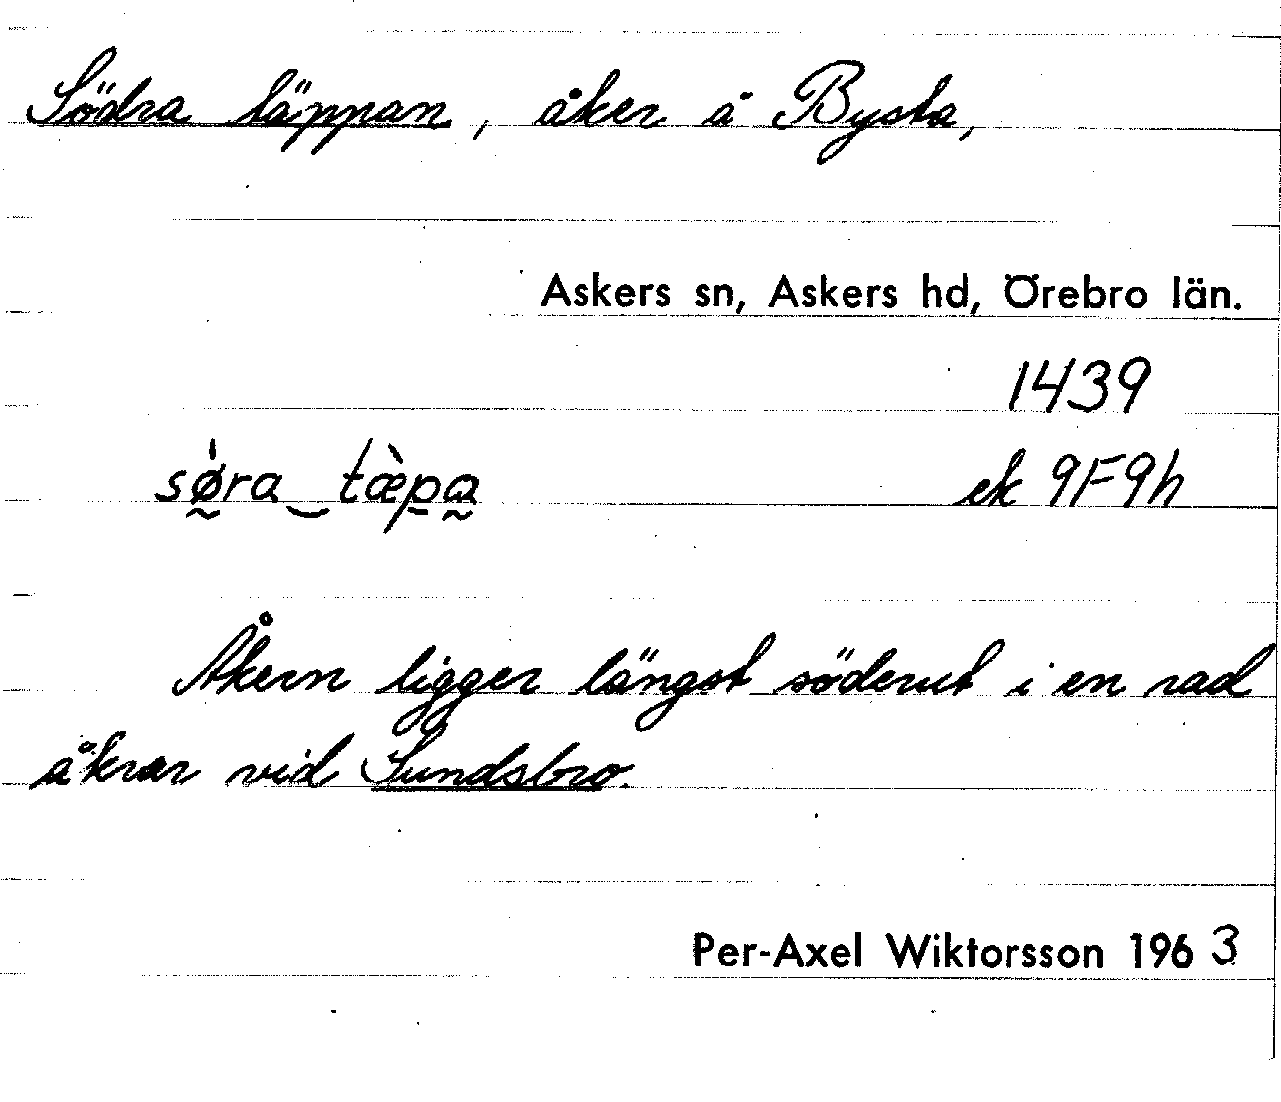 Södra täppan, åker å Bysta,
Askers sn, Askers hd, Örebro län.
1439
sǿ̰ra‿tæ̀pa̰ ek 9F9h
Åkern ligger längst söderut i en rad
åkrar vid Sundsbro.
Per-Axel Wiktorsson 1963